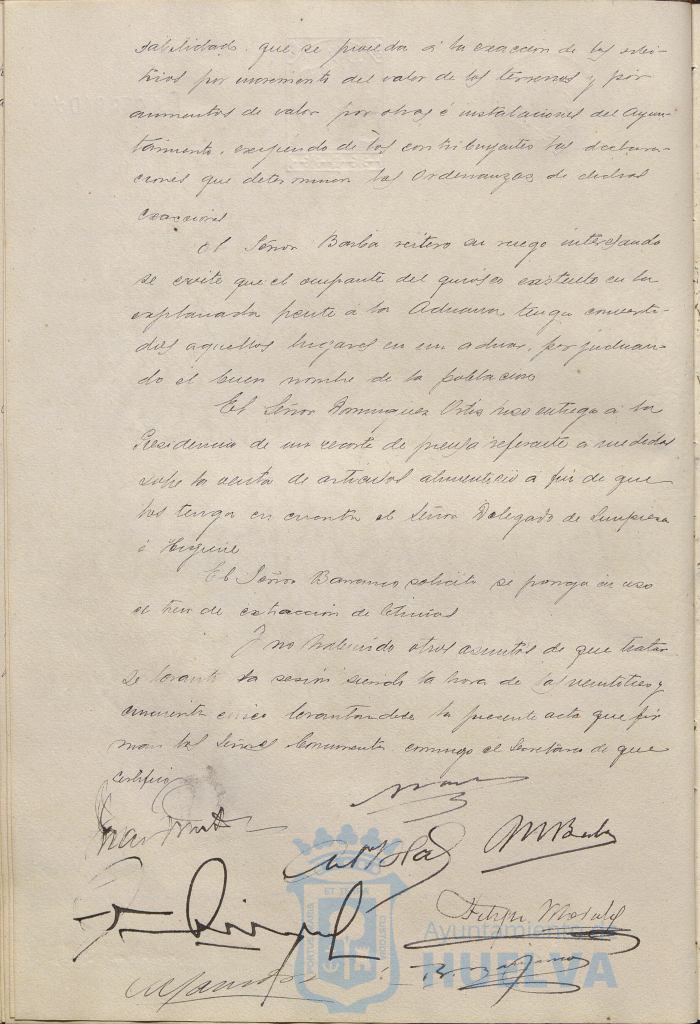 sabilidado que se proceda á la exacción de los arbi-
trios por incremento del valor de los terrenos y por
aumentos de valor por obras é instalaciones del Ayun-
tamiento, exigiendo de los contribuyentes las declara-
ciones que determinan las Ordenanzas de dichas
exacciones
El Señor Barba reitero su ruego interesando
se evite que el ocupante del quiosco existente en la
explanada frente á la Aduana, tenga converti-
dos aquellos lugares en un aduar, perjudican-
do el buen nombre de la poblacion
El Señor Dominguez Ortiz hizo entrega á la
Presidencia de un recorte de prensa referente a medidas
sobre la venta de articulos alimenticios á fin de que
los tenga en cuenta el Señor Delegado de Limpieza
é Higiene
El Señor Barranco solicito se ponga en uso
el tren de extracción de letrinas
Y no habiendo otros asuntos de que tratar
se levantó la sesión siendo la hora de las veintitres y
cincuenta cinco levantandose la presente acta que fir-
man los Señores Concurrentes conmigo el Secretario de que
certifico
M Barba
Felipe Morales
ET TERRAE
PORTUS MARIS
CUSTODIA
Ayuntamiento de
HUELVA